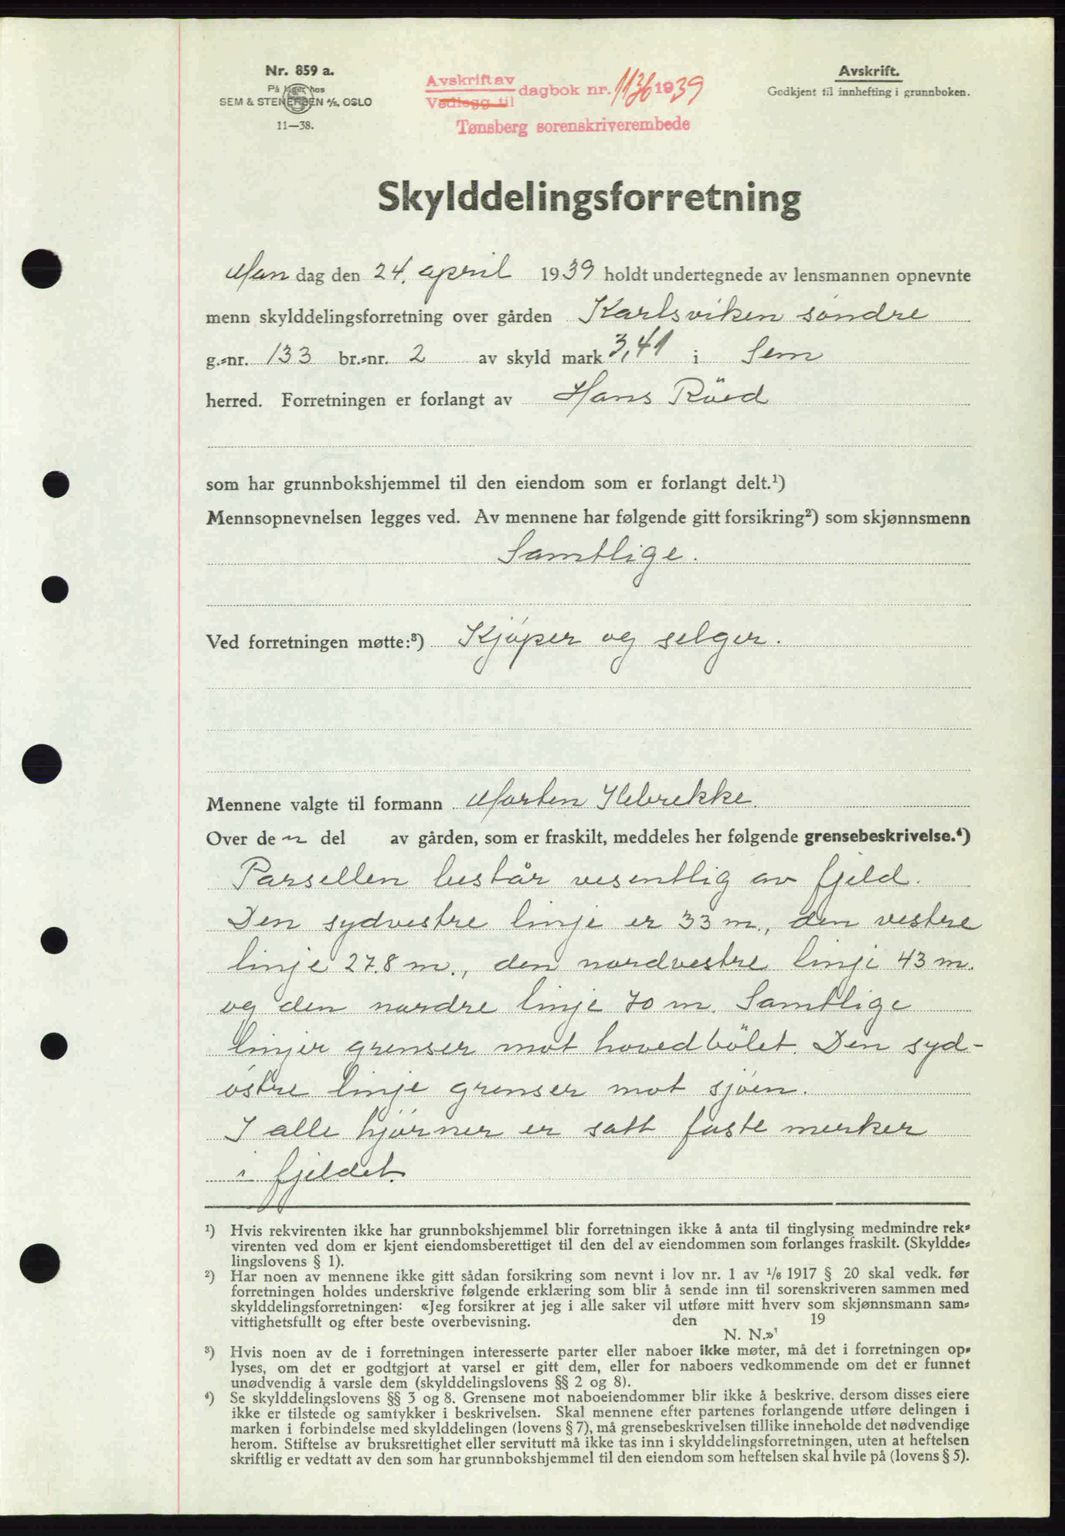 Nr. 859 a.
På lager hos
SEM & STENERSEN A/S, OSLO
11—38.
Avskrift av
Vedlegg til
dagbok nr. 1136 1939
Tønsberg sorenskriverembede
Avskrift.
Godkjent til innhefting i grunnboken.
Skylddelingsforretning
Man dag den 24. april 1939 holdt undertegnede av lensmannen opnevnte
menn skylddelingsforretning over gården Karlsviken søndre
g.-nr. 133 br.-nr. 2 av skyld mark 3,41 i Sem
herred. Forretningen er forlangt av Hans Röed
som har grunnbokshjemmel til den eiendom som er forlangt delt.¹)
Mennsopnevnelsen legges ved. Av mennene har følgende gitt forsikring²) som skjønnsmenn
Samtlige.
Ved forretningen møtte:³) Kjöper og selger.
Mennene valgte til formann Morten Ilebrekke.
Over de n del av gården, som er fraskilt, meddeles her følgende grensebeskrivelse.⁴)
Parsellen består vesentlig av fjeld.
Den sydvestre linje er 33 m., den vestre
linje 27.8 m., den nordvestre linje 43 m.
og den nordre linje 70 m. Samtlige
linjer grenser mot hovedbölet. Den syd-
östre linje grenser mot sjöen.
I alle hjörner er satt faste merker
i fjeldet.
¹) Hvis rekvirenten ikke har grunnbokshjemmel blir forretningen ikke å anta til tinglysing medmindre rek-
virenten ved dom er kjent eiendomsberettiget til den del av eiendommen som forlanges fraskilt. (Skyldde-
lingslovens § 1).
²) Har noen av mennene ikke gitt sådan forsikring som nevnt i lov nr. 1 av 1/6 1917 § 20 skal vedk. før
forretningen holdes underskrive følgende erklæring som blir å sende inn til sorenskriveren sammen med
skylddelingsforretningen: «Jeg forsikrer at jeg i alle saker vil utføre mitt hverv som skjønnsmann sam-
vittighetsfullt og efter beste overbevisning. den 19
N. N.»
³) Hvis noen av de i forretningen interesserte parter eller naboer ikke møter, må det i forretningen op-
lyses, om det er godtgjort at varsel er gitt dem, eller for naboers vedkommende om det er funnet
unødvendig å varsle dem (skylddelingslovens §§ 2 og 8).
⁴) Se skylddelingslovens §§ 3 og 8. Grensene mot naboeiendommer blir ikke å beskrive, dersom disses eiere
ikke er tilstede og samtykker i beskrivelsen. Skal mennene efter partenes forlangende utføre delingen i
marken i forbindelse med skylddelingen (lovens § 7), må grensebeskrivelsen tillike inneholde det nødvendige
herom. Stiftelse av bruksrettighet eller servitutt må ikke tas inn i skylddelingsforretningen, uten at heftelsen
skriftlig er vedtatt av den som har grunnbokshjemmel til den eiendom som heftelsen skal hvile på (lovens § 5).